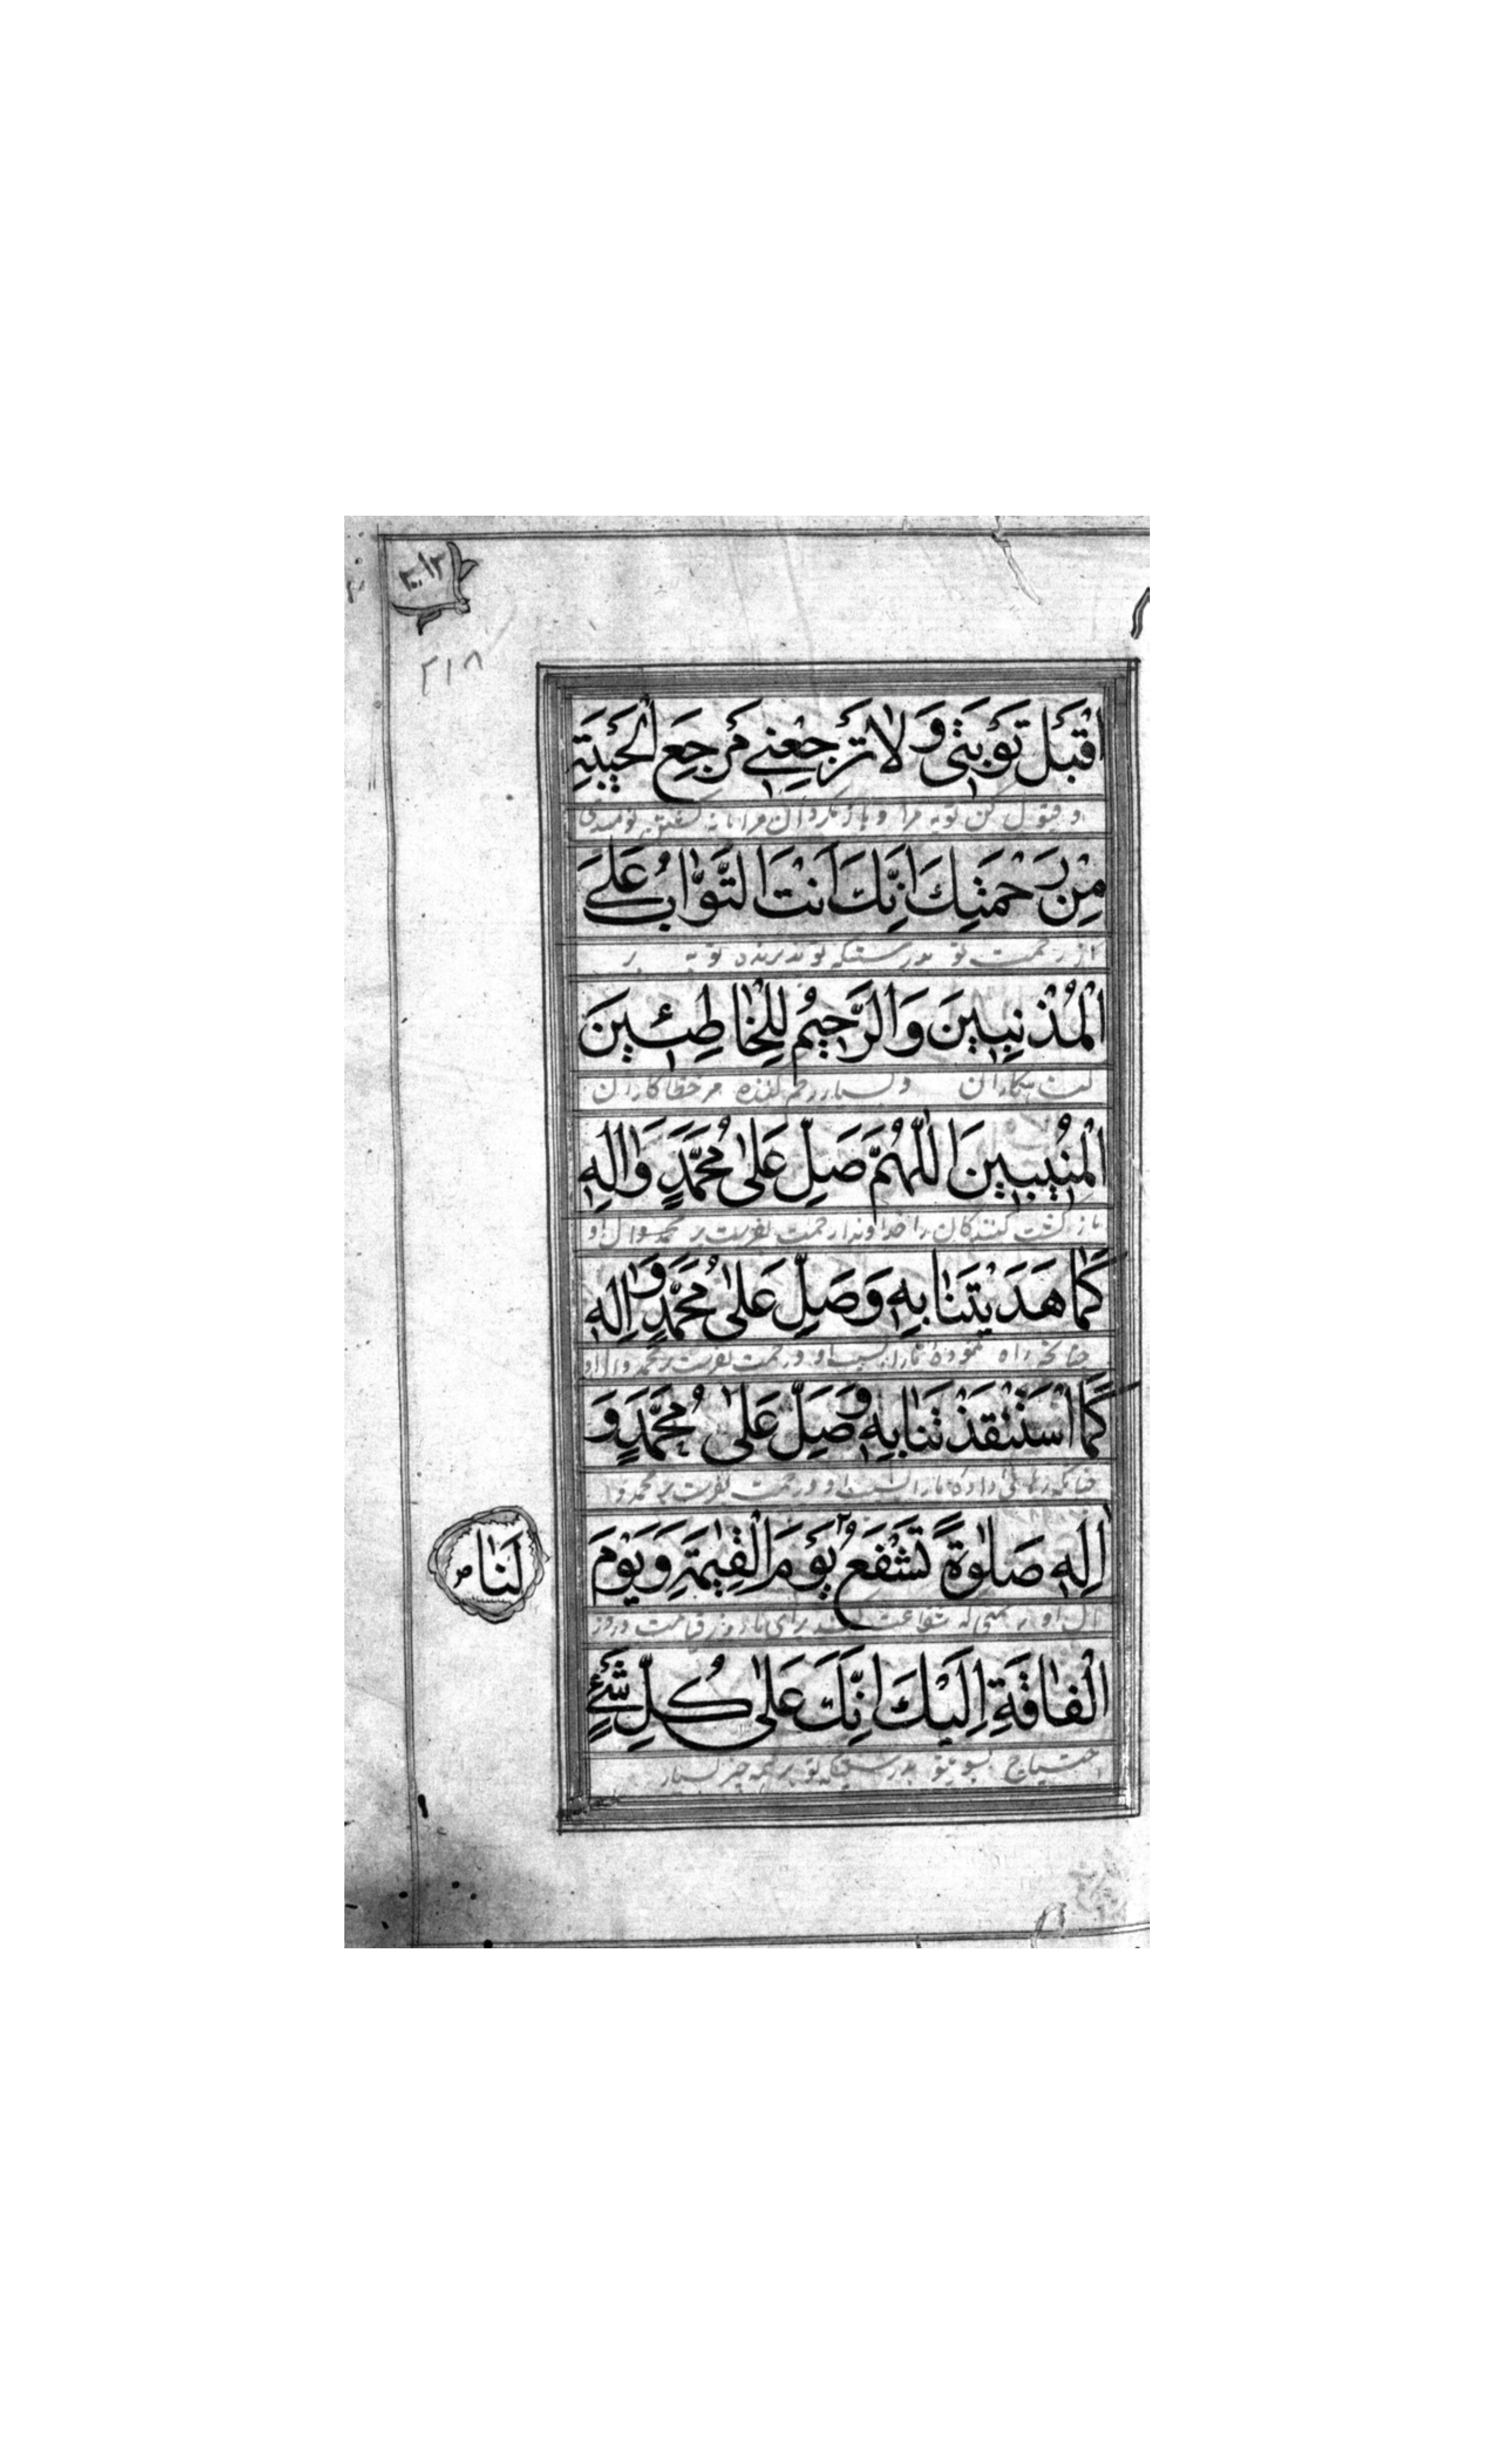 ۳۰۱۲
۲۱۸
اقْبَلْ تَوْبَتِی وَلَا تَرْجِعْنِی مَرْجِعَ الْخَیْبَةِ
و قبول کن توبه مرا و باز مگردان مرا نومیدی
مِنْ رَحْمَتِكَ اِنَّكَ اَنْتَ التَّوَّابُ عَلَی
از رحمت تو بدرستیکه تو پذیرنده توبه بر
الْمُذْنِبِینَ وَالرَّحِیمُ لِلْخَاطِئِینَ
و بسیار رحم کننده مر خطاکاران
الْمُنِیبِینَ اَللّٰهُمَّ صَلِّ عَلیٰ مُحَمَّدٍ وَاٰلِهِ
باز گشت کنندگان را خداوندا رحمت بفرست بر محمد وال او
كَمَا هَدَیْتَنَا بِهِ وَصَلِّ عَلیٰ مُحَمَّدٍ وَاٰلِهِ
چنانچه راه نموده مارا بسبب او و رحمت بفرست بر محمد وال او
كَمَا اسْتَنْقَذْتَنَا بِهِ وَصَلِّ عَلیٰ مُحَمَّدٍ وَ
چنانکه رهائی داده مارا بسبب او و رحمت بفرست بر محمد و
اٰلِهِ صَلٰوةً تَشْفَعُ یَوْمَ الْقِیٰمَةِ وَیَوْمَ
ال او رحمتی که شفاعت کند برای ما روز قیامت و روز
لَنَا
الْفَاقَةِ اِلَیْكَ اِنَّكَ عَلیٰ كُلِّ شَیْءٍ
احتیاج بسوی تو بدرستیکه تو بر همه چیز بسیار